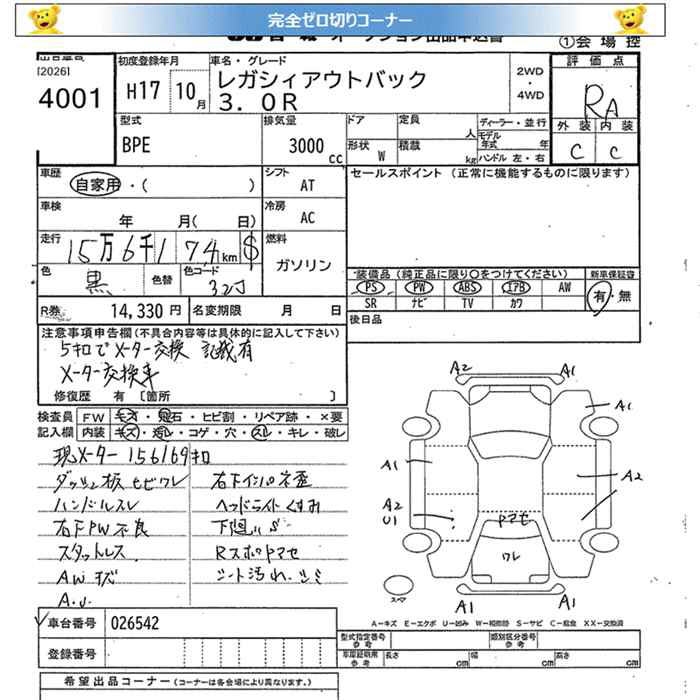 完全ゼロ切りコーナー
①会場控
[2026]
4001
初度登録年月
H17 10月
車名・グレード
レガシィアウトバック
3.0R
2WD
・
4WD
評価点
RA
外装 内装
C C
型式
BPE
排気量
3000cc
ドア
定員
人
形状
W
積載
kg
ディーラー・並行
モデル年式
年
ハンドル 左・右
車歴
自家用・( )
シフト
AT
セールスポイント (正常に機能するものに限ります)
車検
年 月( 日)
冷房
AC
走行
15万6千174km $
燃料
ガソリン
色
黒
色替
色コード
32J
装備品(純正品に限り○をつけてください)
PS PW ABS エアB AW
SR ナビ TV カワ
新車保証書
有・無
R券
14,330 円
名変期限
月 日
後日品
注意事項申告欄(不具合内容等は具体的に記入して下さい)
5キロでメーター交換 記載有
メーター交換車
修復歴 有 [箇所 ]
検査員記入欄
FW キズ・飛石・ヒビ割・リペア跡・×要
内装 キズ・汚レ・コゲ・穴・スレ・キレ・破レ
現メーター 156169キロ
ダッシュ板ヒビワレ
ハンドルスレ
右下PW不良
スタットレス
AWキズ
右下インパネ歪
ヘッドライトくすみ
下廻りS
RスポPマセ
シート汚れ、シミ
A2 A1
A1
A1
A2
A2
U1
Pマセ
ワレ
スマ
A1 A1
A－キズ E－エクボ U－凹み W－補修跡 S－サビ C－腐食 XX－交換済
車台番号
026542
登録番号
型式指定番号
参考
類別区分番号
参考
車庫証明用
参考
長さ cm
幅 cm
高さ cm
希望出品コーナー(コーナーは各会場により異なります。)